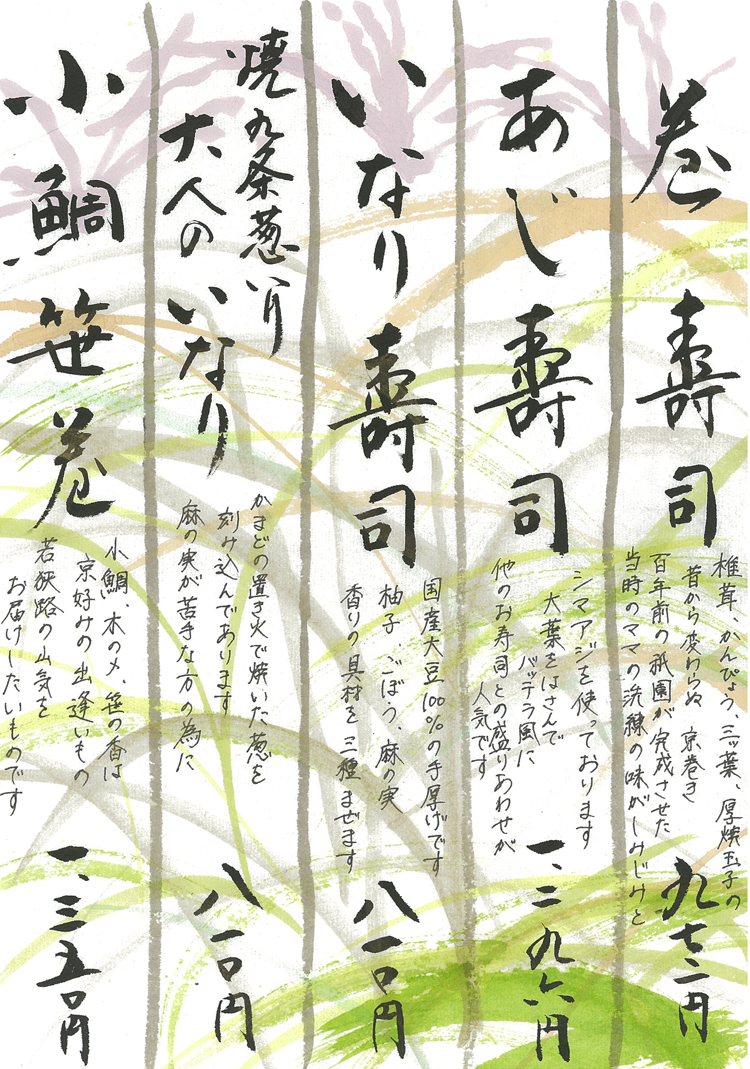 巻壽司
椎茸、かんぴょう、三ッ葉、厚焼玉子の
昔から変わらぬ 京巻き
百年前の祇園が完成させた
当時のママの洗練の味がしみじみと
九七二円
あじ壽司
シマアジを使っております
大葉をはさんで
バッテラ風に
他のお寿司との盛りあわせが
人気です
一、二九六円
いなり壽司
国産大豆100%の手厚げです
柚子、ごぼう、麻の実
香りの具材を 三種 まぜます
八一〇円
焼九条葱入り
大人のいなり
かまどの置き火で焼いた葱を
刻み込んであります
麻の実が苦手な方の為に
八一〇円
小鯛笹巻
小鯛、木のメ、笹の香は
京好みの出逢いもの
若狭路の山気を
お届けしたいものです
一、三五〇円